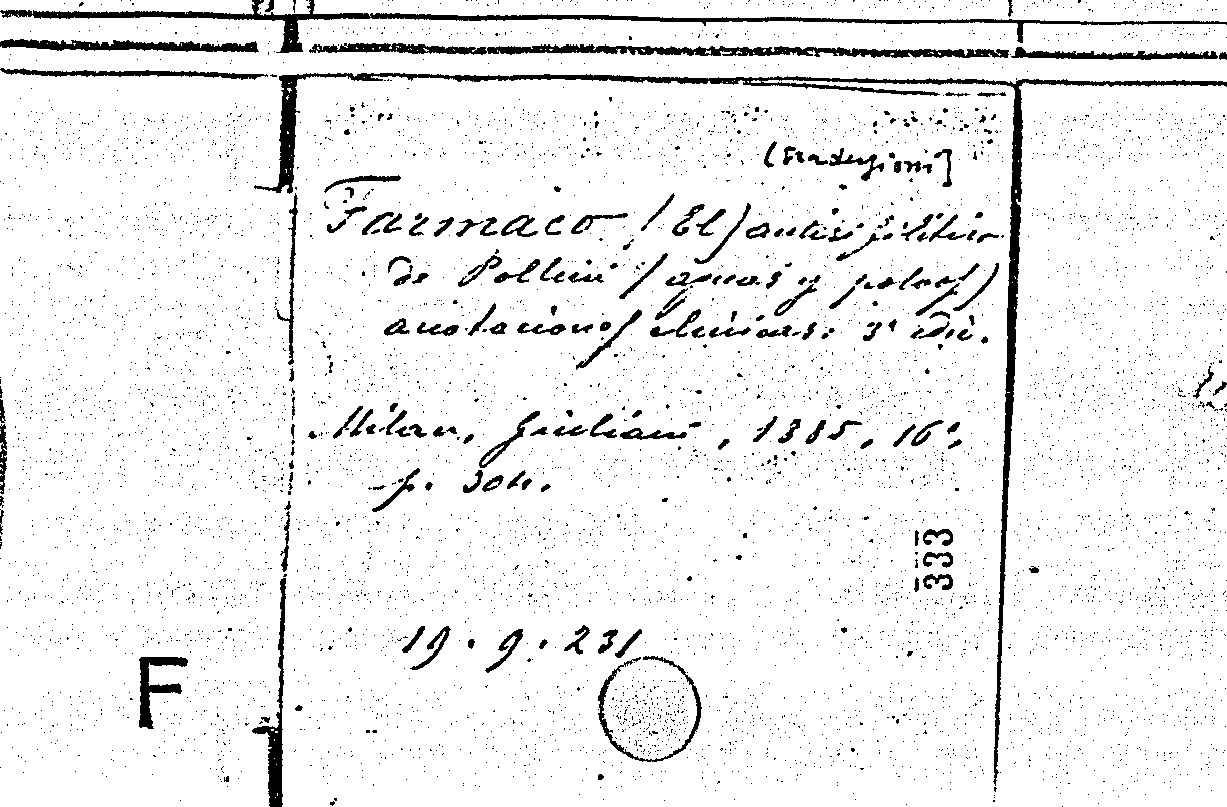 [traduzioni]
Farmaco (El) antisifilitico
de Pollini (aguas y polvos)
anotaciones clinicas: 3ª edic.
Milan, Giuliani, 1885, 16°,
p. 304.
333
19.9.231
F